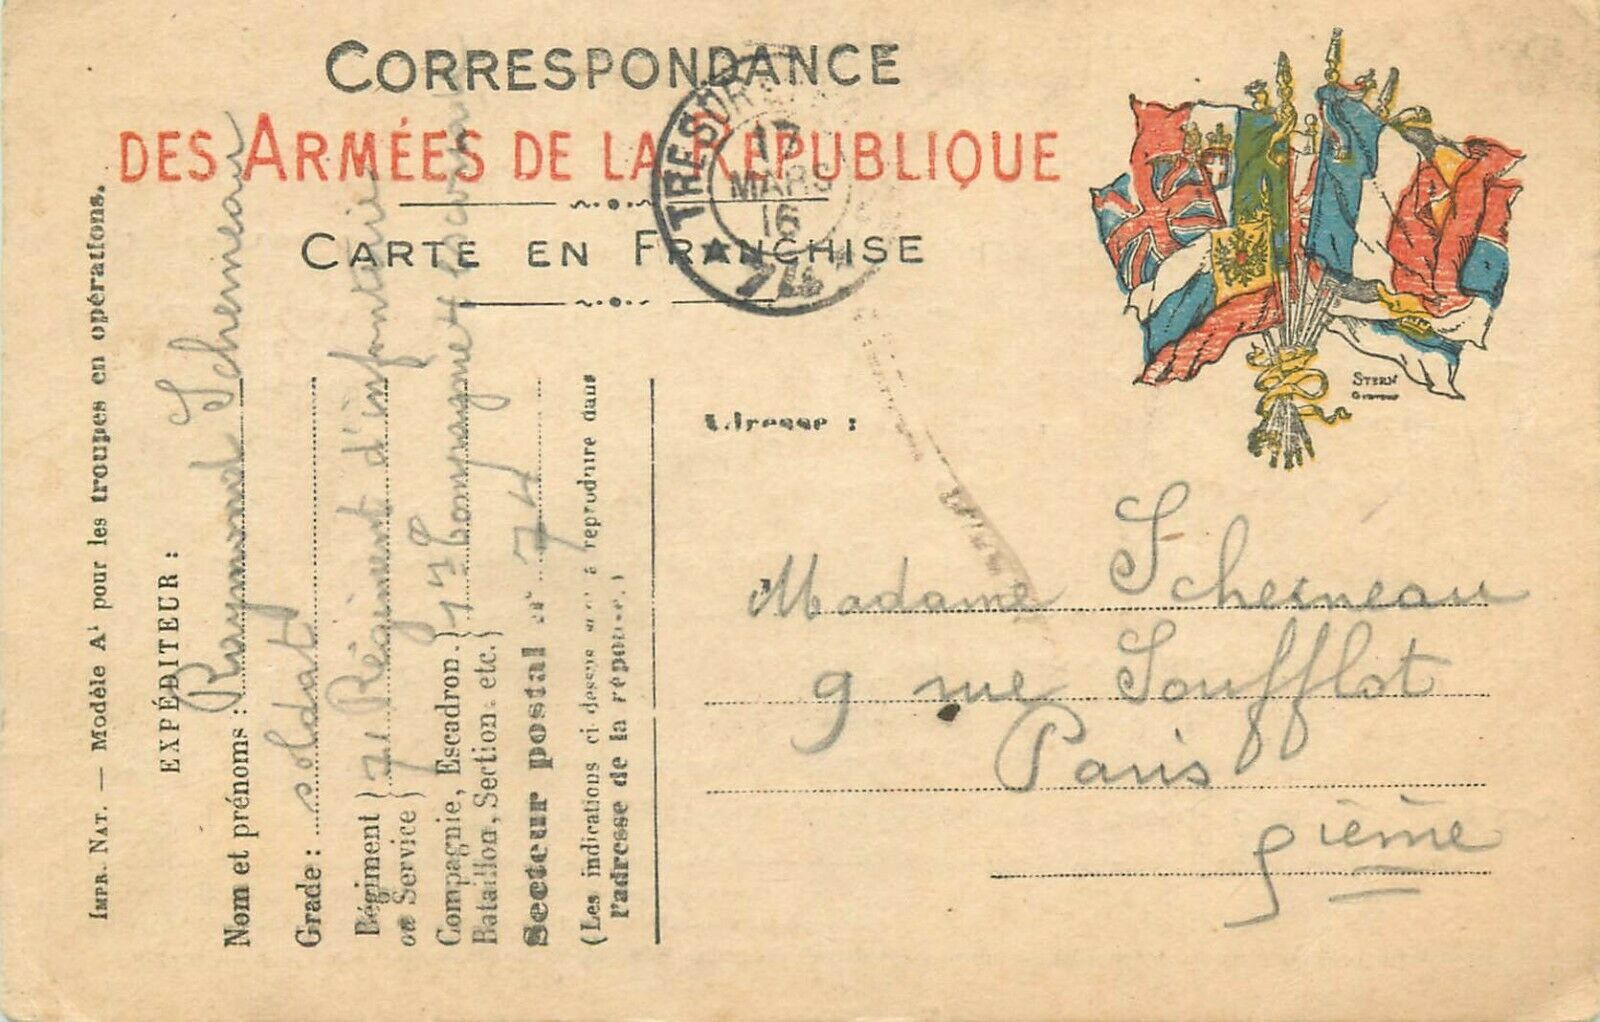 CORRESPONDANCE
DES ARMÉES DE LA RÉPUBLIQUE
CARTE EN FRANCHISE
TRESOR
17
MARS
16
74
STERN
Adresse :
Madame Scherneau
9 rue Soufflot
Paris
5ième
IMPR. NAT. — Modèle A¹ pour les troupes en opérations.
EXPÉDITEUR :
Nom et prénoms : Raymond Scherneau
Grade : soldat
Régiment } Régiment d'infanterie
ou Service }
Compagnie, Escadron. } Compagnie
Bataillon, Section, etc. }
Secteur postal 74
(Les indications ci-dessus à reproduire dans
l'adresse de la réponse.)